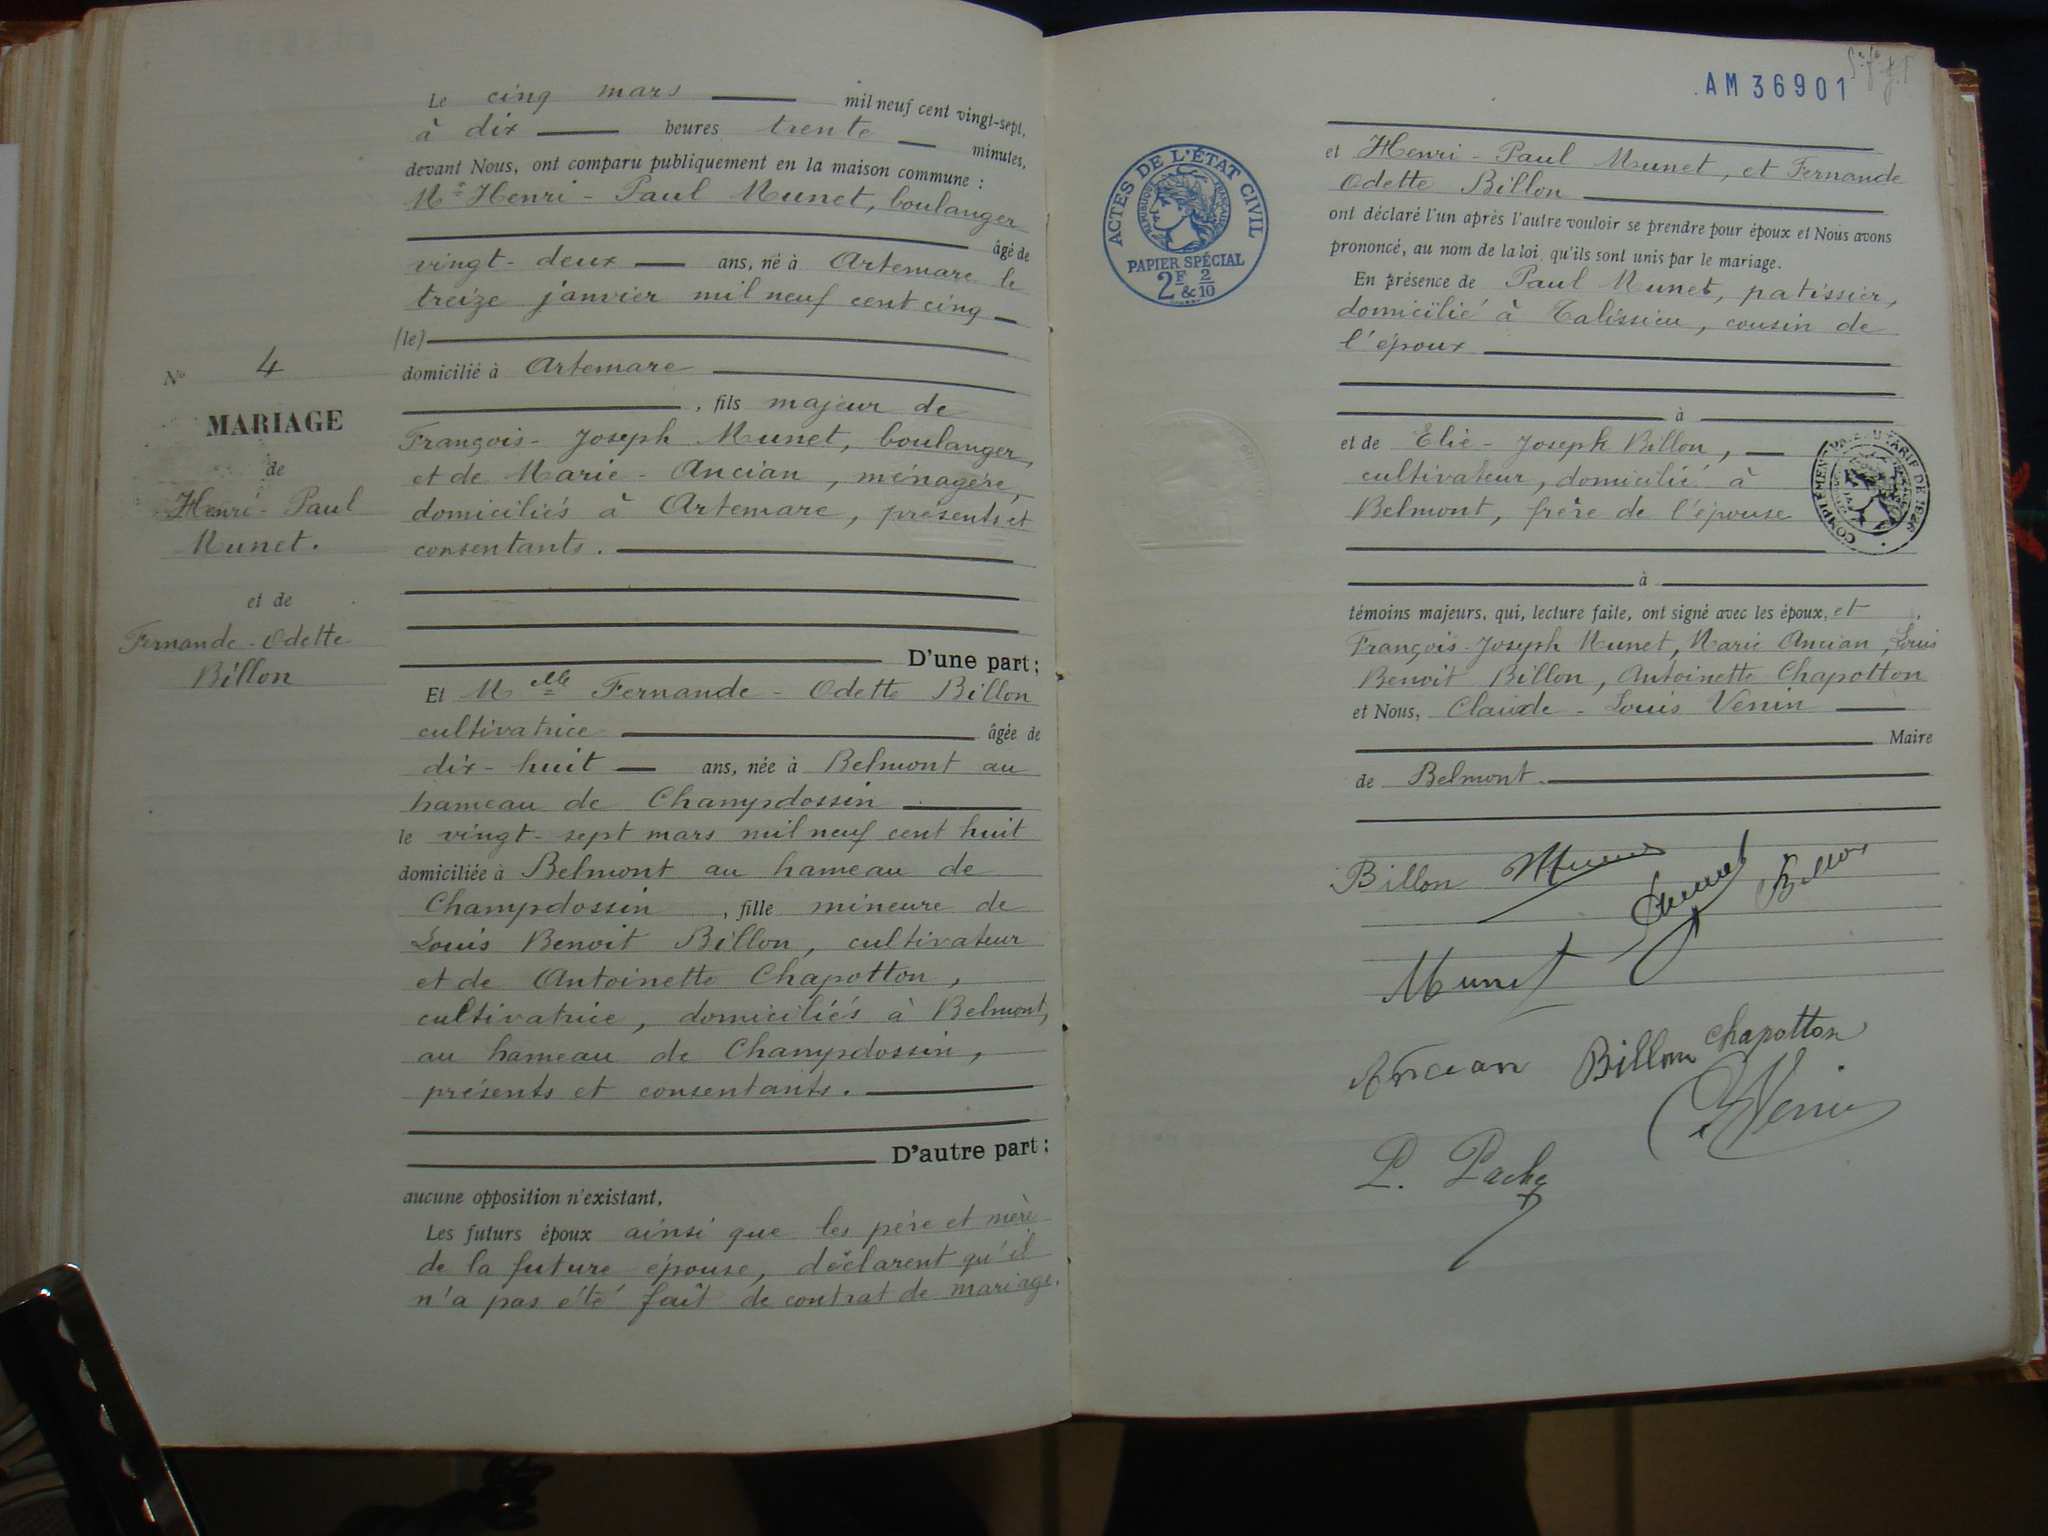 N° 4
MARIAGE
de
Henri-Paul
Munet.
et de
Fernande-Odette
Billon
Le cinq mars mil neuf cent vingt-sept,
à dix heures trente minutes,
devant Nous, ont comparu publiquement en la maison commune :
Mr Henri-Paul Munet, boulanger
âgé de
vingt-deux ans, né à Artemare le
treize janvier mil neuf cent cinq
(le)
domicilié à Artemare
, fils majeur de
François-Joseph Munet, boulanger,
et de Marie-Ancian, ménagère,
domiciliés à Artemare, présents et
consentants.
D'une part ;
Et Melle Fernande-Odette Billon
cultivatrice âgée de
dix-huit ans, née à Belmont au
hameau de Champdossin
le vingt-sept mars mil neuf cent huit
domiciliée à Belmont au hameau de
Champdossin, fille mineure de
Louis Benoit Billon, cultivateur
et de Antoinette Chapotton,
cultivatrice, domiciliés à Belmont,
au hameau de Champdossin,
présents et consentants.
D'autre part ;
aucune opposition n'existant,
Les futurs époux ainsi que les père et mère
de la future épouse, déclarent qu'il
n'a pas été fait de contrat de mariage.
AM 36901
ACTES DE L'ÉTAT CIVIL
RÉPUBLIQUE FRANÇAISE
PAPIER SPÉCIAL
2F & 2/10
et Henri-Paul Munet, et Fernande
Odette Billon
ont déclaré l'un après l'autre vouloir se prendre pour époux et Nous avons
prononcé, au nom de la loi, qu'ils sont unis par le mariage.
En présence de Paul Munet, patissier,
domicilié à Talissieu, cousin de
l'époux
à
et de Elie-Joseph Billon,
cultivateur, domicilié à
Belmont, frère de l'épouse
COMPLÉMENT DU TARIF DE 1926
à
témoins majeurs, qui, lecture faite, ont signé avec les époux, et
François-Joseph Munet, Marie Ancian, Louis
Benoit Billon, Antoinette Chapotton
et Nous, Claude-Louis Venin
Maire
de Belmont.
Billon Munet Munet Billon
Munet
Ancian Billon Chapotton
Venin
P. Pache